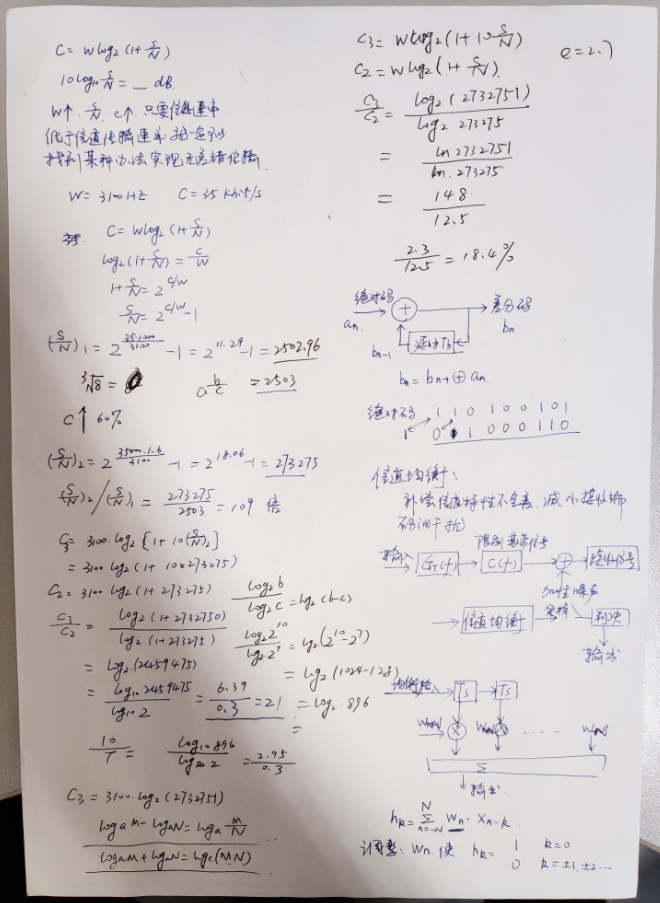 C = W log₂(1+S/N)
10 log₁₀ S/N = __ dB.
W↑. S/N. C↑. 只要信道速率
低于信道传输速率 就一定可以
找到某种办法实现无差错传输.
W = 3100HZ C = 35 kbit/s
C = W log₂(1+S/N)
log₂(1+S/N) = C/W
1+S/N = 2^{C/W}
S/N = 2^{C/W} - 1
(S/N)₁ = 2^{35·1000/3100} - 1 = 2^{11.29} - 1 = 2502.96
³√8 = a^{b/c} = 2503
C↑ 60%
(S/N)₂ = 2^{35000·1.6/3100} - 1 = 2^{18.06} - 1 = 273275
(S/N)₂/(S/N)₁ = 273275/2503 = 109 倍
C₃ = 3100·log₂[1+10(S/N)₂]
= 3100 log₂(1+10×273275)
C₂ = 3100 log₂(1+273275) log₂b/log₂c = log₂(b-c)
C₃/C₂ = log₂(1+2732750)/log₂(1+273275) log₂2^{10}/log₂2^7 = log₂(2^{10}-2^7)
= log₂(2459475) = log₂(1024-128)
= log₁₀2459475/log₁₀2 = 6.39/0.3 = 21 = log₂·896
=
10/7 = log₁₀896/log₁₀2 = 2.95/0.3
C₃ = 3100·log₂(2732751)
logₐM - logₐN = logₐ M/N
logₐM + logₐN = logₐ(MN)
C₃ = W log₂(1+10 S/N)
C₂ = W log₂(1+S/N). e = 2.7
C₃/C₂ = log₂(2732751)/log₂ 273275
= ln 2732751/ln. 273275
= 14.8/12.5
2.3/12.5 = 18.4%
绝对码 + 差分码
aₙ. bₙ
bₙ₋₁ 延时Ts
bₙ = bₙ₋₁ ⊕ aₙ.
绝对码 1 1 0 1 0 0 1 0 1
1 0 1 0 0 0 1 1 0
信道均衡:
补偿信道特性不完善. 减小接收端
码间干扰
限制基带信号
输入 G_T(f) C(f) + 接收信号
加性噪声
信道均衡 采样 判决
输出
Ts Ts
× ×
Σ
输出
hₖ = Σ_{n=-N}^{N} Wₙ·Xₙ₋ₖ
调整: Wₙ. 使 hₖ = 1 k=0
0 k=±1,±2...